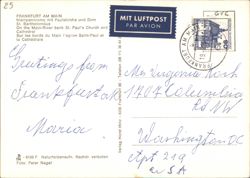 25
FRANKFURT AM MAIN
Mainpanorama mit Paulskirche und Dom
St. Bartholomäus
On the Main River bank St. Paul's Church and
Cathedral
Sur les bords du Main l'église Saint-Paul et
la Cathédrale
MIT LUFTPOST
PAR AVION
Greetings from
Frankfurt aM
Maria
Mrs Virginia
1707 Columbia
Rd NW
Washington DC
Apt 219
USA
Naturfarbenaufn. Nachdr. verboten
Foto: Peter Nagel